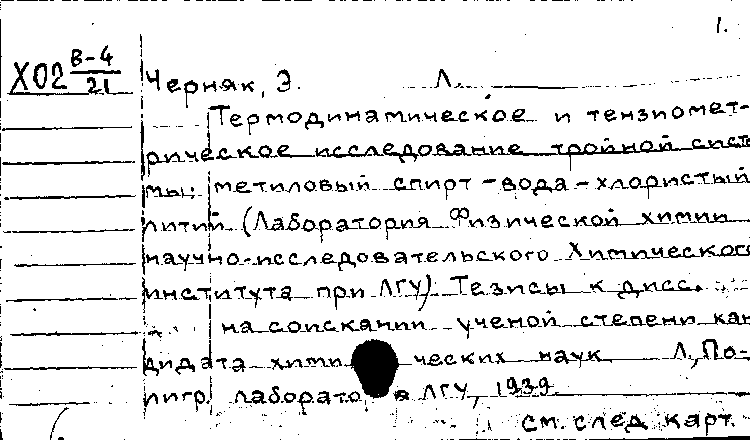 1.
Х02 В-4/21
Черняк, Э. Л.
Термодинамическое и тензиомет-
рическое исследование тройной систе
мы: метиловый спирт-вода-хлористый
литий (Лаборатория Физической химии
научно-исследовательского Химического
института при ЛГУ) Тезисы к дисс.
на соискании ученой степени кан
дидата хими ческих наук Л, По-
лигр. лаборато в ЛГУ, 1939.
см. след карт.